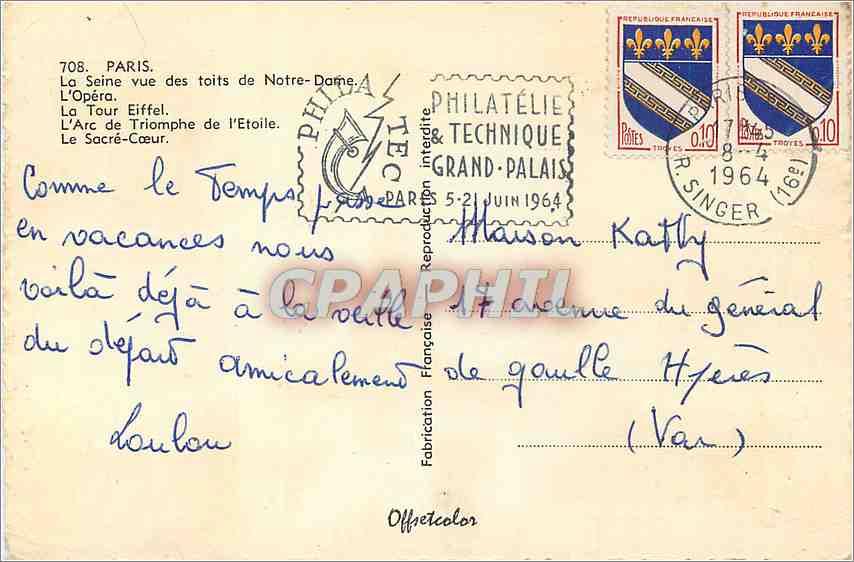 708. PARIS.
La Seine vue des toits de Notre-Dame.
L'Opéra.
La Tour Eiffel.
L'Arc de Triomphe de l'Etoile.
Le Sacré-Cœur.
PHILATEC
PHILATÉLIE
& TECHNIQUE
GRAND-PALAIS
PARIS 5-21 JUIN 1964
REPUBLIQUE FRANÇAISE
POSTES
0,10
TROYES
REPUBLIQUE FRANÇAISE
POSTES
0,10
TROYES
PARIS
8-4
1964
R. SINGER (16e)
Comme le Temps passe
en vacances nous
voilà déjà à la veille
du départ amicalement
Loulou
Fabrication Française Reproduction interdite
Maison Kathy
17 avenue du général
de gaulle Hyères
(Var)
CPAPHIL
Offsetcolor